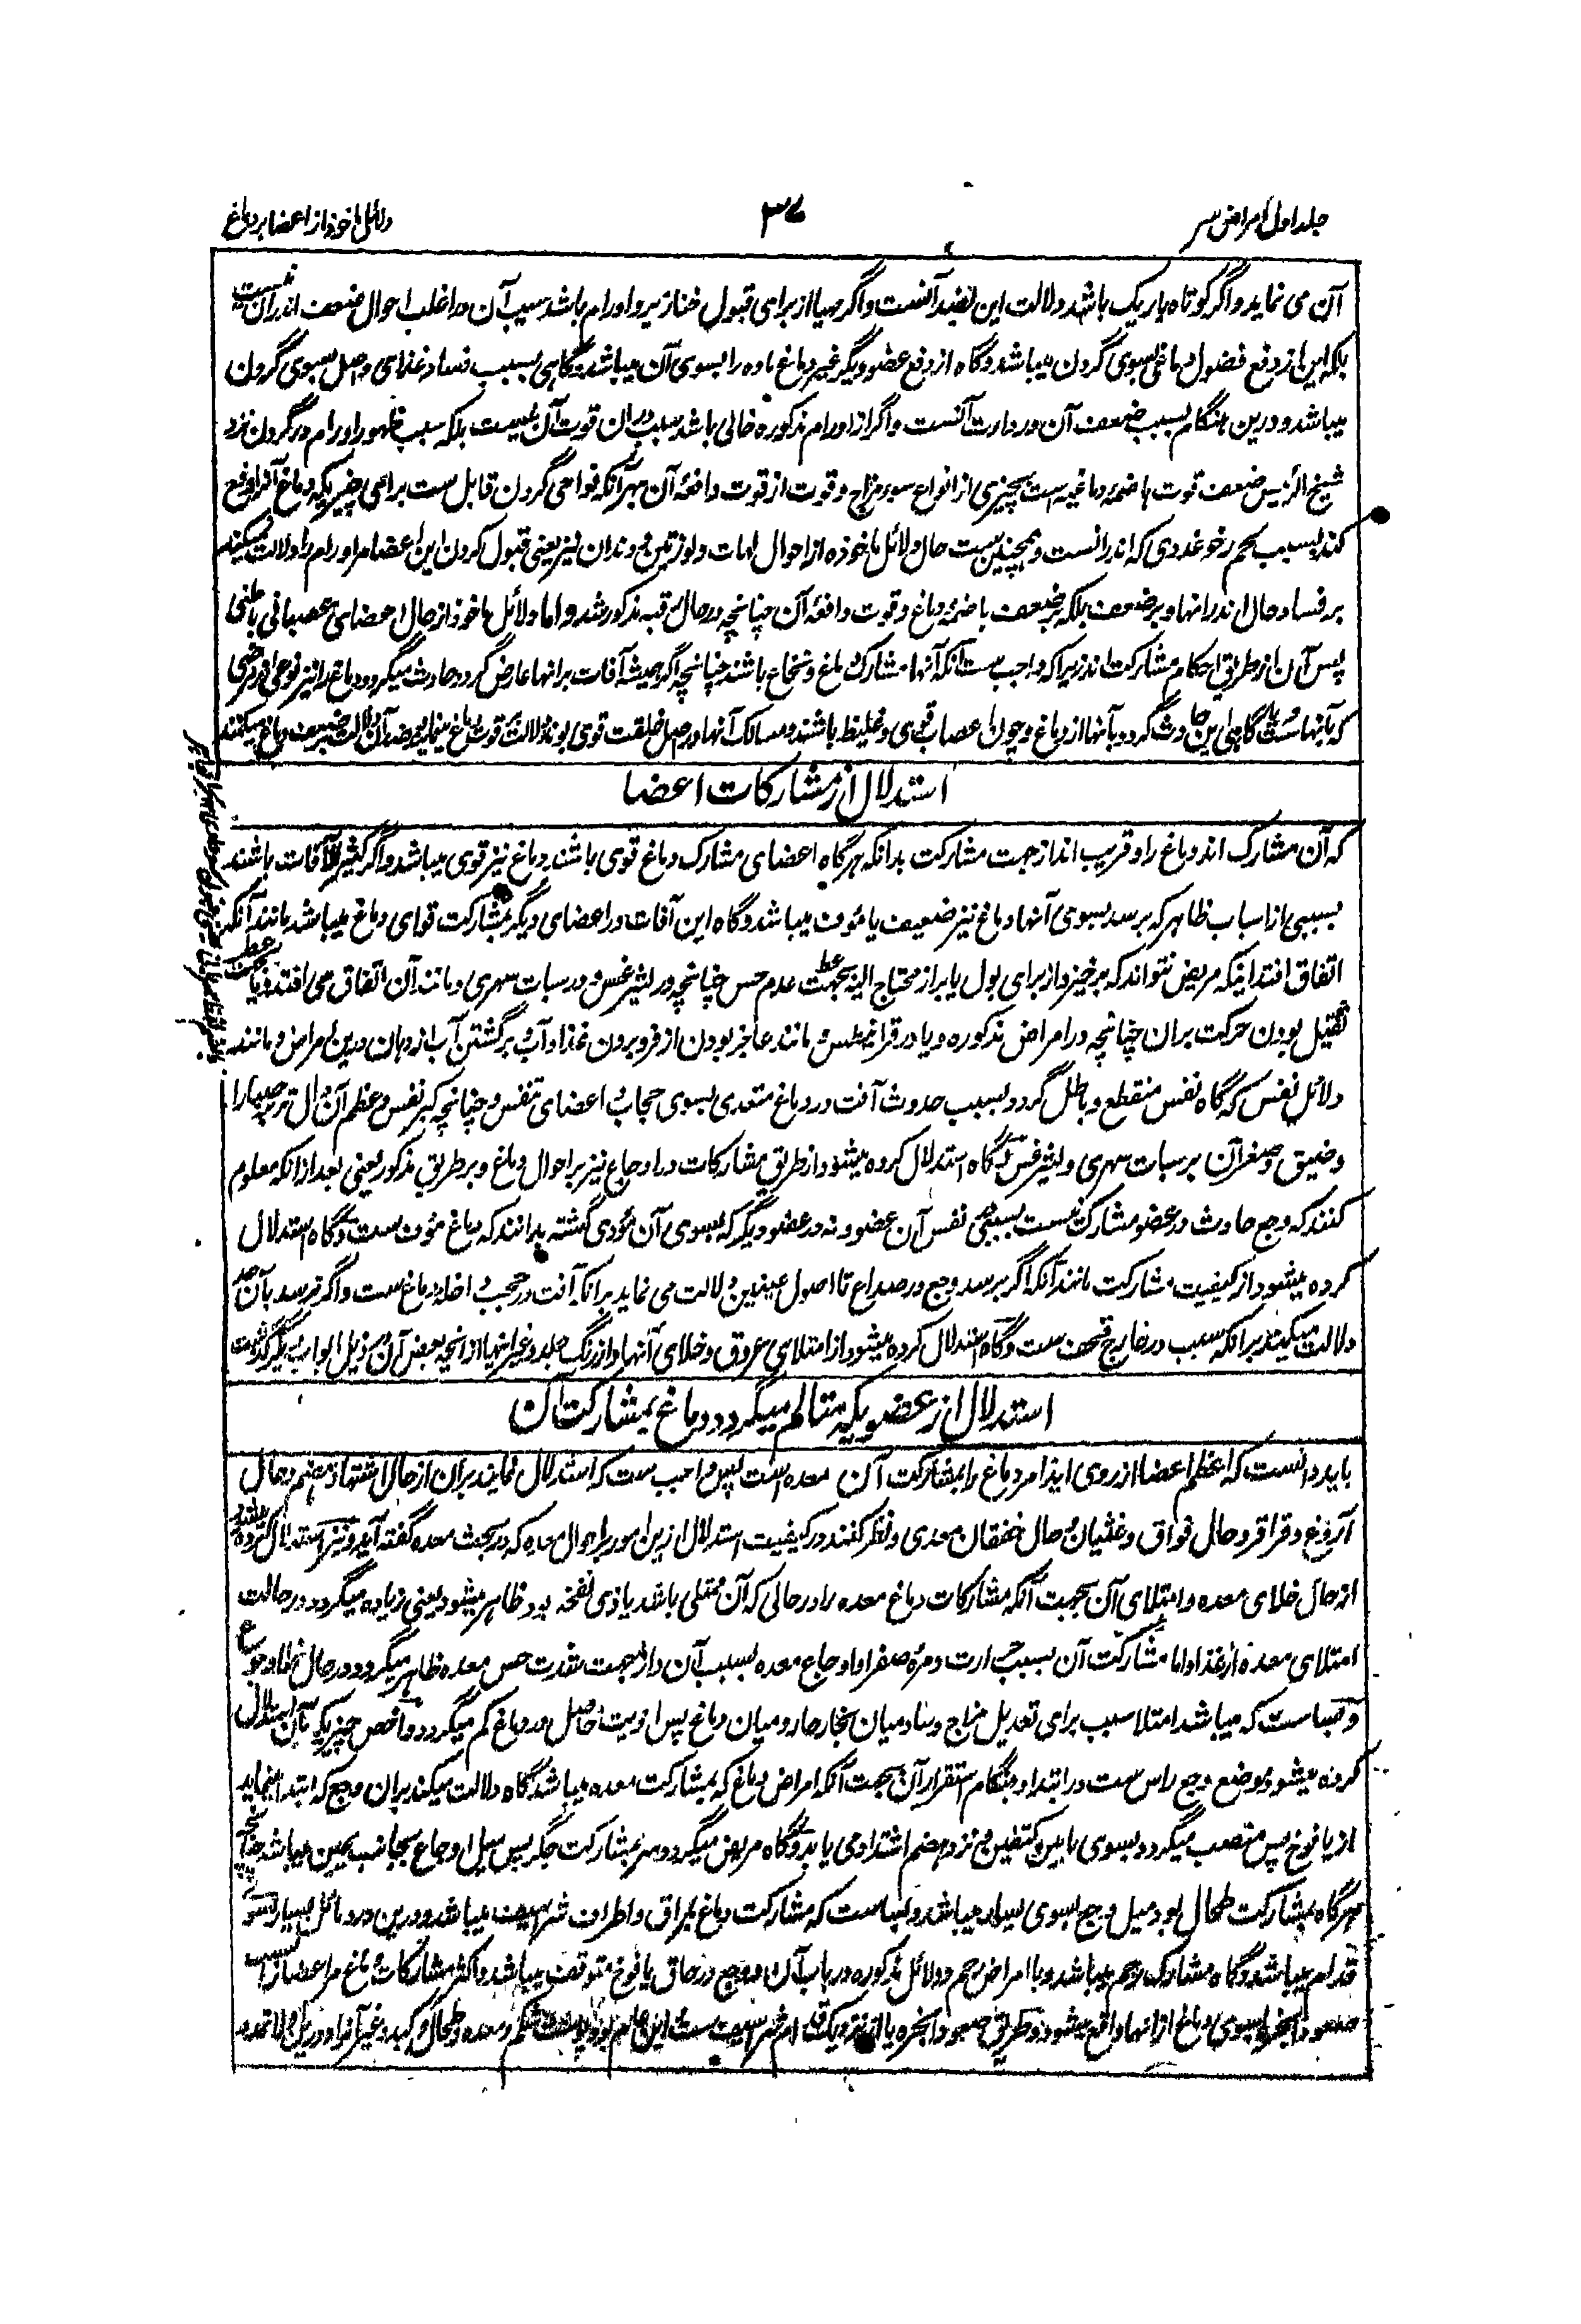 جلد اول امراض سر
۳۷
دلائل ماخوذ از اعضا بر دماغ
آن می نماید و اگر کوتاه باریک باشد دلالت این بضد آنست و اگر مهیا از برای قبول خنازیر و اورام باشد سبب آن در اغلب احوال ضعف اندر آن نیست
بلکه این از دفع فضول دماغی بسوی گردن میباشد و گاه از دفع عضو دیگر غیر دماغ ماده را بسوی آن میباشد و گاهی بسبب فساد غذای واصل بسوی گردن
میباشد و درین هنگام بسبب ضعف آن و ردارت آنست و اگر از اورام مذکوره خالی باشد سبب در ان قوت آن نیست بلکه سبب ظهور اورام در گردن نزد
شیخ الرئیس ضعف قوت هاضمه دماغیه است بچیزی از انواع سوء مزاج و قوت از قوت دافعه آن بهر آنکه نواحی گردن قابل ست برای چیزیکه دماغ آنرا دفع
کند بسبب لحم رخو غددی که اندر انست و همچنین ست حال دلائل ماخوذه از احوال لهات و لوزتین و دندان نیز یعنی قبول کردن این اعضا مر اورام را دلالت میکند
بر فساد حال اندر انها و بر ضعف بلکه بر ضعف هاضمه دماغ و قوت دافعه آن چنانچه در حال رقبه مذکور شد و اما دلائل ماخوذ از حال اعضای عصبانی باطنی
پس آن از طریق احکام مشارکت اند زیرا که واجب ست آنکه آنها مشارک دماغ و نخاع باشند چنانچه اگر همیشه آفات بر انها عارض گردد حادث میگردد دماغ را نیز نوعی از مرضی
که بآنهاست یا گاهی این حادث گردد بآنها از دماغ و چون اعصاب قوی و غلیظ باشند و مسالک آنها در اصل خلقت قوی بوند دلالت بر قوت دماغ مینماید و ضد آن دلالت بر ضعف دماغ میکنند
استدلال از مشارکات اعضا
که آن مشارک اند دماغ را و قریب اند از جهت مشارکت بدانکه هرگاه اعضای مشارک دماغ قوی باشند دماغ نیز قوی میباشد و اگر کثیر الآفات باشند
بسببی از اسباب ظاهر که برسد بسوی آنها دماغ نیز ضعیف یا مئوف میباشد و گاه این آفات در اعضای دیگر بمشارکت قوای دماغ میباشد مانند آنکه
اتفاق افتد اینکه مریض نتواند که برخیزد از برای بول یا براز محتاج الیه بجهت عدم حس چنانچه در لیثرغس و در سبات سهری و مانند آن اتفاق می افتد و یا بجهت
ثقیل بودن حرکت بران چنانچه در امراض مذکوره و یا در قرانیطس و مانند عاجز بودن از فرو بردن غذا و آب و برگشتن آب از دهان درین امراض و مانند
دلائل نفس که گاه نفس منقطع و باطل گردد بسبب حدوث آفت در دماغ متعدی بسوی حجاب و اعضای تنفس و چنانچه کبر نفس و عظم آن دال تر بر صبارا
و ضیق و صغر آن بر سبات سهری و لیثرغس و گاه استدلال کرده میشود از طریق مشارکات در اوجاع نیز بر احوال دماغ و بر طریق مذکور یعنی بعد از انکه معلوم
کنند که وجع حادث در عضو مشارک نیست بسببی نفس آن عضو و نه در عضو دیگر که بسوی آن مؤدی گشته بدانند که دماغ مئوف ست و گاه استدلال
کرده میشود از کیفیت مشارکت مانند آنکه اگر برسد وجع در صداع تا اصول عینین دلالت می نماید بر انکه آفت در حجب داخله دماغ ست و اگر نرسد بآن حد
دلالت میکند بر آنکه سبب در خارج قحف ست و گاه استدلال کرده میشود از امتلای عروق و خلای آنها و از رنگ جلد و غیر اینها از انچه بعض آن در ذیل ابواب دیگر گذشت
استدلال از عضویکه متالم میگردد دماغ بمشارکت آن
باید دانست که اعظم اعضا از روی ایذا مر دماغ را بمشارکت آن معده است پس واجب ست که استدلال نمایند بران از حال اشتها و هضم و حال
آروغ و قراقر و حال فواق و غثیان و حال خفقان معدی و نظر کنند در کیفیت استدلال ازین امور بر احوال معده که در بحث معده گفته آید و نیز استدلال کرده میشود
از حال خلای معده و امتلای آن بجهت آنکه مشارکات دماغ معده را در حالی که آن ممتلی باشد یا ذی نفخه بود ظاهر میشود یعنی زیاده میگردد در حالت
امتلای معده از غذا و اما مشارکت آن بسبب حرارت و مره صفرا و اوجاع معده بسبب آن و از جهت شدت حس معده ظاهر میگردد در حال خلا و جوع
و بسا ست که میباشد امتلا سبب برای تعدیل مزاج و ساد میان بخار حار و میان دماغ پس اذیت حاصل در دماغ کم میگردد و اخص چیزیکه بآن استدلال
کرده میشود موضع وجع راس ست در ابتدا و هنگام استقرار آن بجهت آنکه امراض دماغ که بمشارکت معده میباشد گاه دلالت میکند بران وجع که ابتدا مینماید
از یافوخ پس منصب میگردد بسوی ما بین کتفین و نزد هضم اشتداد می یابد و گاه مریض میگردد سر بمشارکت جگر پس میل اوجاع بجانب یمین میباشد چنانچه
هرگاه بمشارکت طحال بود میل وجع بسوی یسار میباشد و بسا ست که مشارکت دماغ بمراق و اطراف شراسیف میباشد و درین درد مائل بسیار بسوی
قدام میباشد و گاه مشارک رحم میباشد و با امراض رحم و دلائل مذکوره در باب آن و وجع در حاق یافوخ متوقف میباشد و اکثر مشارکات دماغ مر اعضا را بسبب
صعود ابخره بسوی دماغ از انها واقع میشود و طریق صعود ابخره یا از نزدیک قدام شراسیف ست